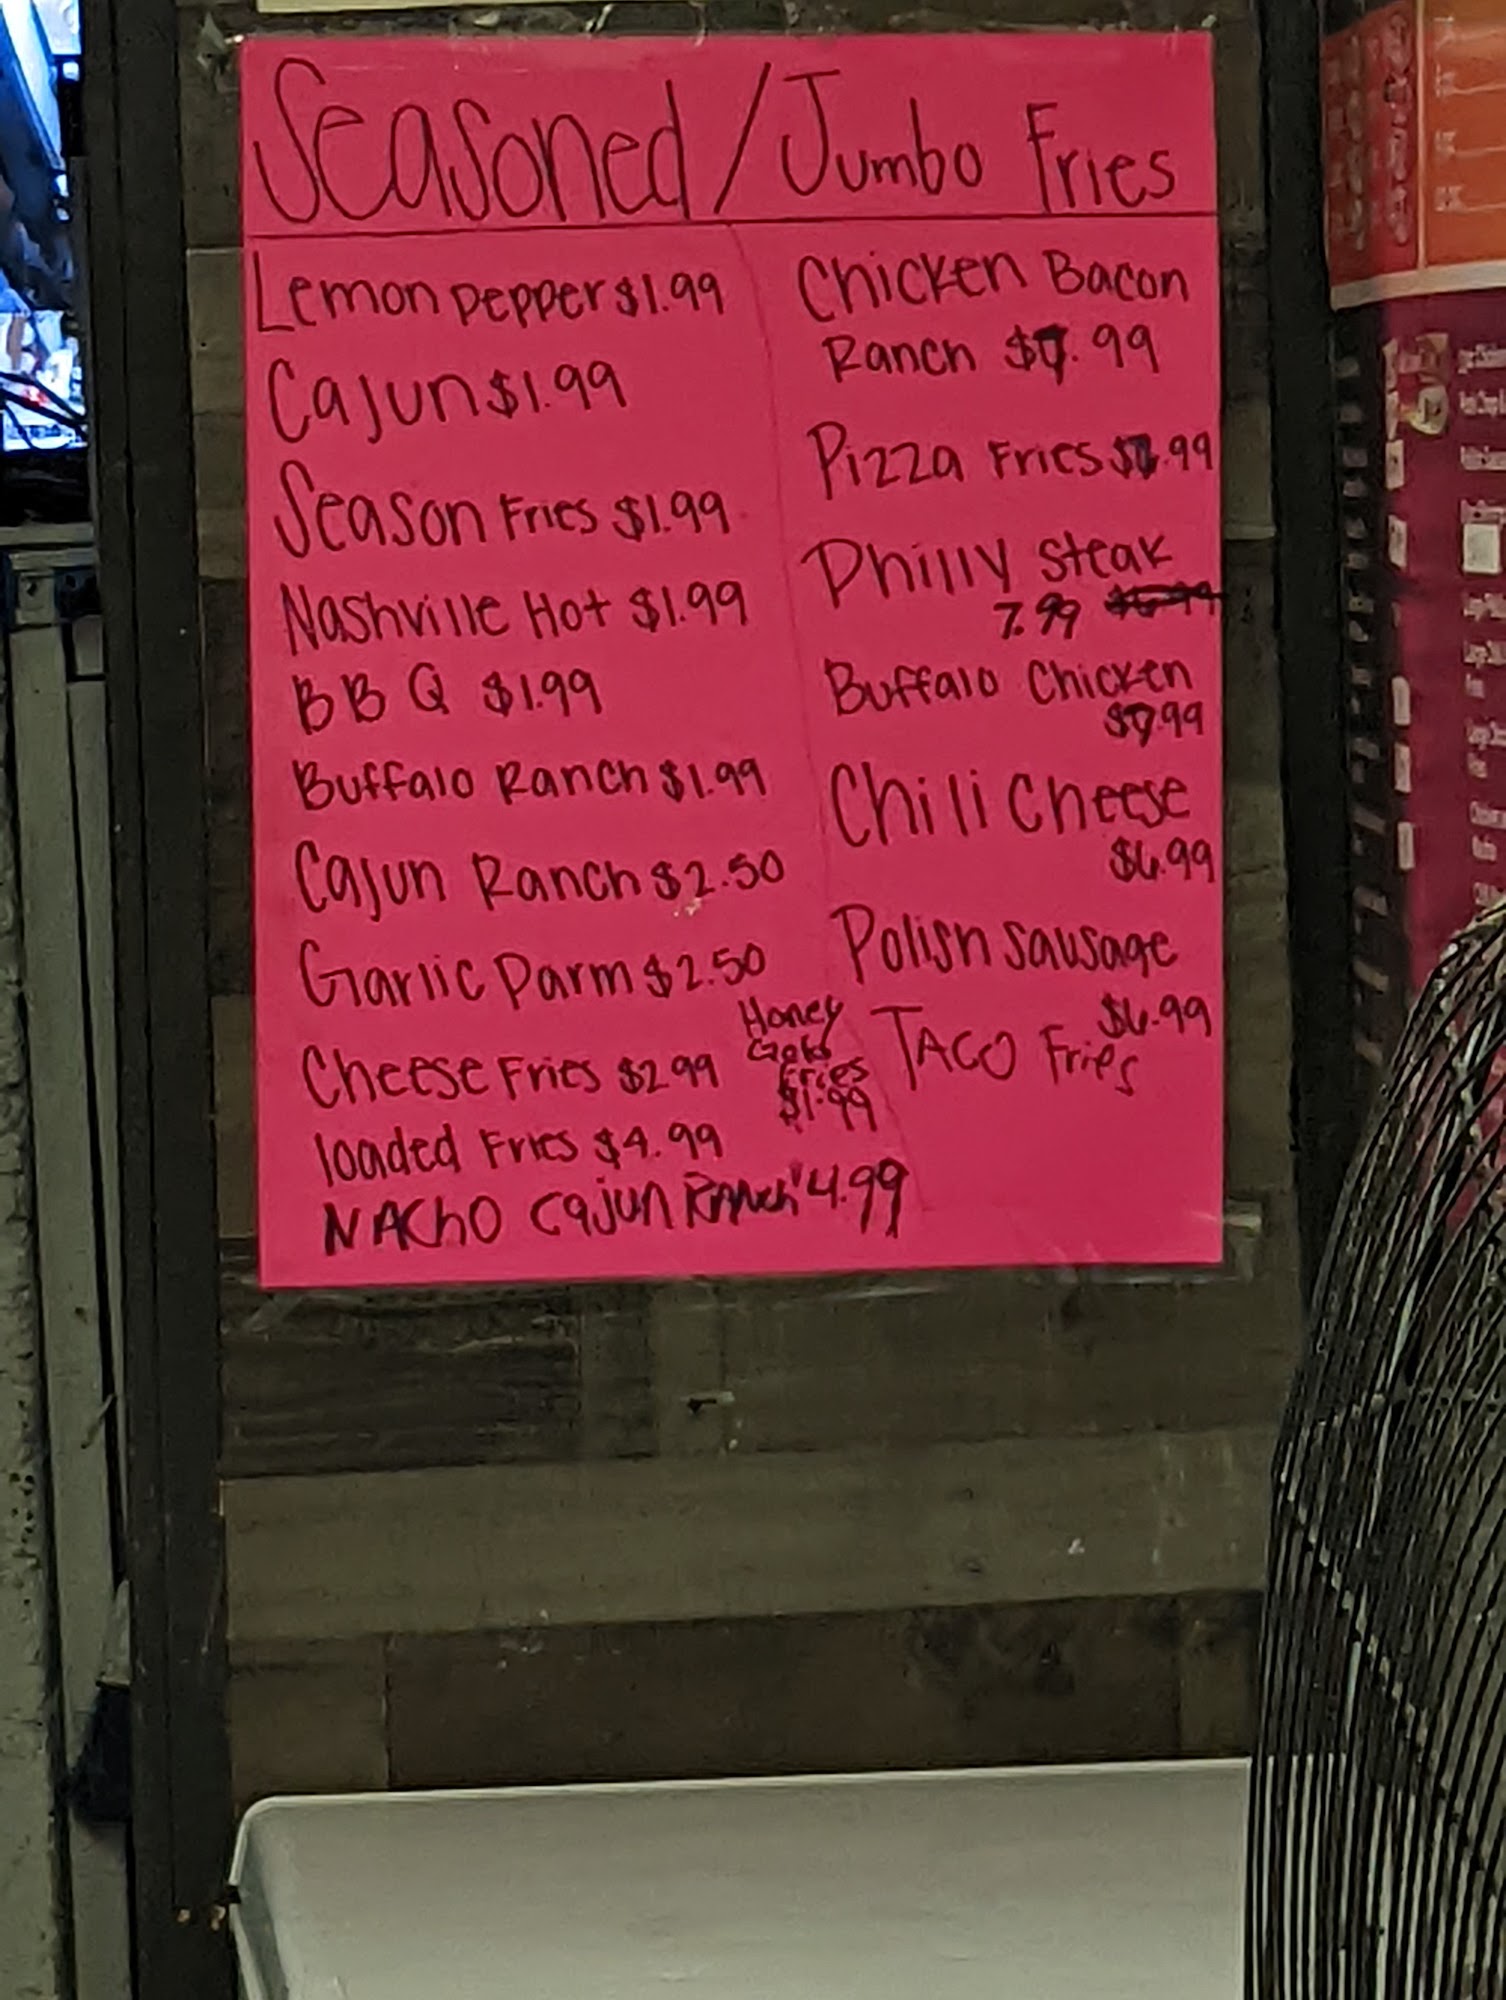 Seasoned / Jumbo Fries
Lemon pepper $1.99
Cajun $1.99
Season Fries $1.99
Nashville Hot $1.99
BBQ $1.99
Buffalo Ranch $1.99
Cajun Ranch $2.50
Garlic Parm $2.50
Cheese Fries $2.99
loaded Fries $4.99
NACHO Cajun Ranch 4.99
Honey
Gold
Fries
$1.99
Chicken Bacon
Ranch $7.99
Pizza Fries $7.99
Philly Steak
7.99 $6.99
Buffalo Chicken
$7.99
Chili Cheese
$6.99
Polish Sausage
$6.99
TACO Fries